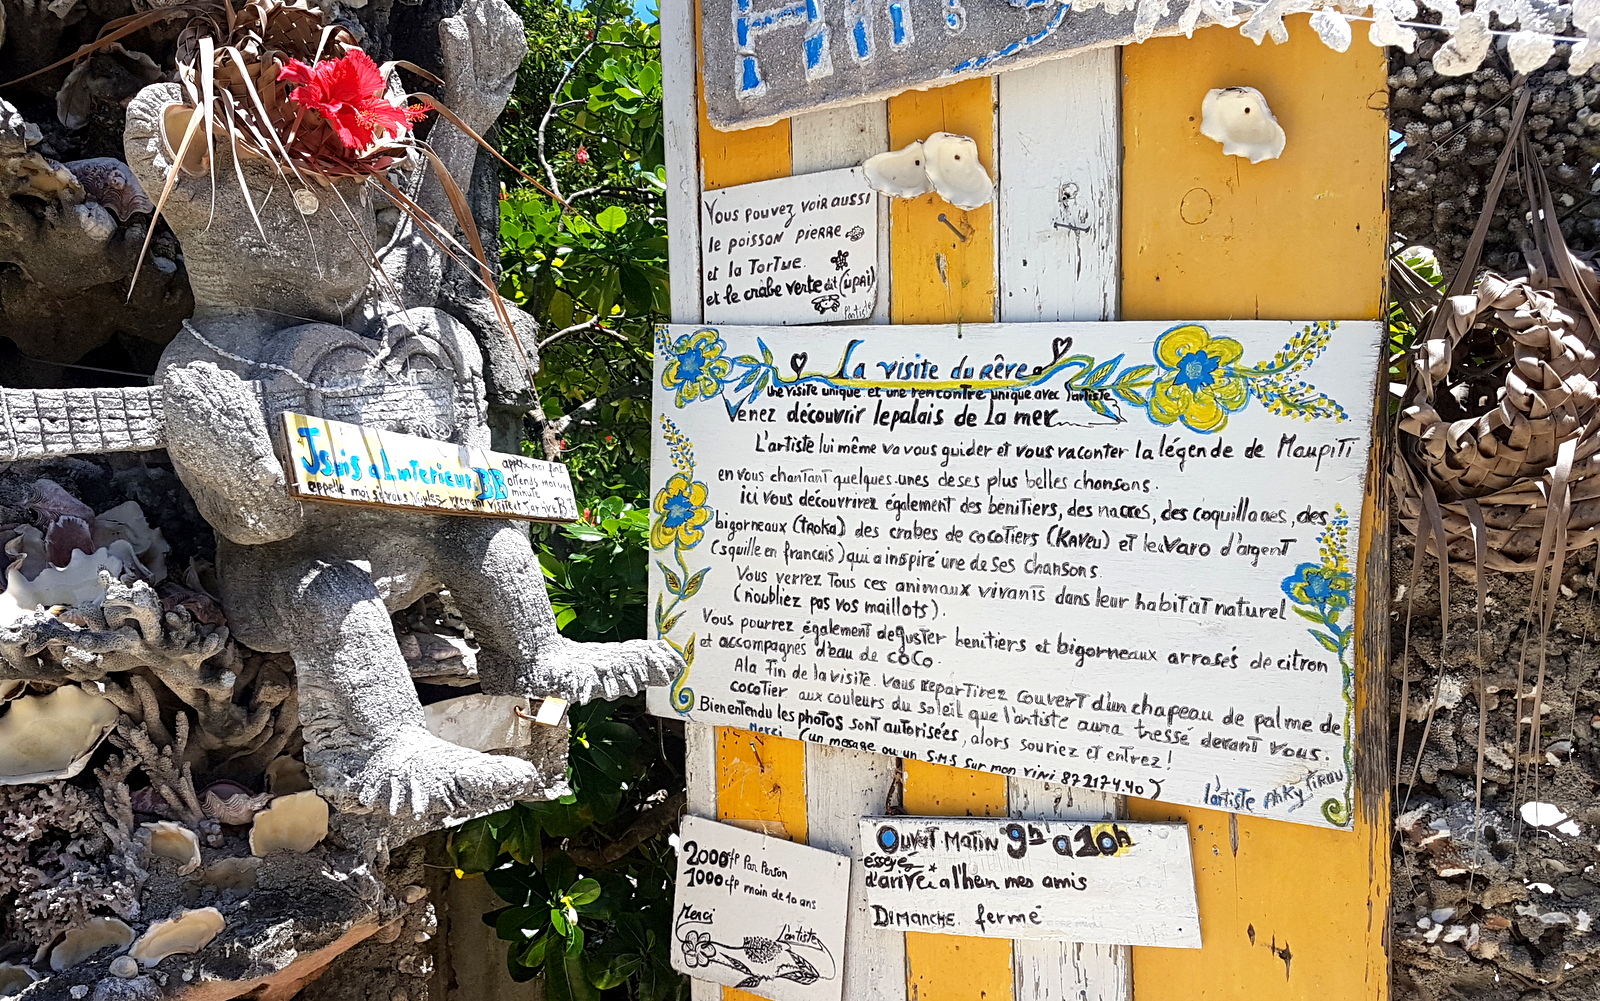 Vous pouvez voir aussi
le poisson pierre
et la Tortue.
et le crabe verte dit (UPAI)
l'artiste
La visite du rêve
Une visite unique et une rencontre unique avec l'artiste
Venez découvrir le palais de la mer
L'artiste lui même va vous guider et vous raconter la légende de Maupiti
en vous chantant quelques-unes de ses plus belles chansons.
ici vous découvrirez également des bénitiers, des nacres, des coquillages, des
bigorneaux (TROKA) des crabes de cocotiers (KAVEU) et le Varo d'argent
(squille en francais) qui a inspiré une de ses chansons.
Vous verrez Tous ces animaux vivants dans leur habitat naturel
(n'oubliez pas vos maillots).
Vous pourrez également déguster benitiers et bigorneaux arrosés de citron
et accompagnés d'eau de coco.
A la Fin de la visite. Vous repartirez couvert d'un chapeau de palme de
cocotier aux couleurs du soleil que l'artiste aura tressé devant vous.
Bien entendu les photos sont autorisées, alors souriez et entrez!
Merci (un mesage ou un S.M.S sur mon vini 87 2174.40)
l'artiste
J suis a L'interieur BB
appelle moi si vous voulez
attends moi une
minute
2000 cfp Par Person
1000 cfp moin de 10 ans
Merci
L'artiste
Ouvert Matin 9h a 10h
esseyez
d'arivé a l'heur mes amis
Dimanche. fermé